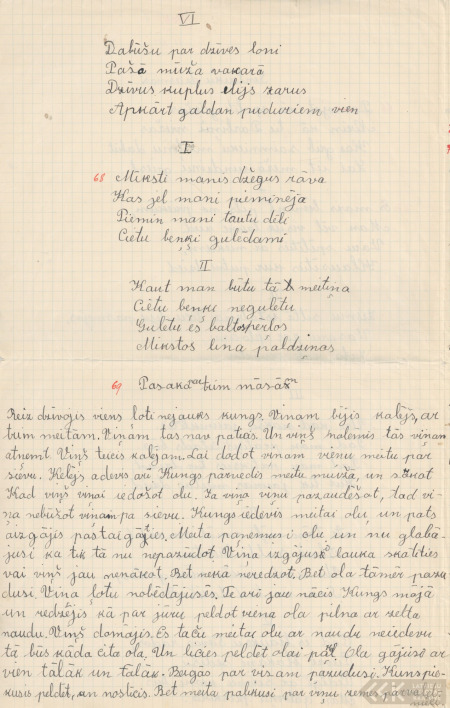 VI
Dabūšu par dzīves loni
Pašā mūža vakarā
Dzīvus kuplus elijs zarus
Apkārt galdan puduriem vien
I
68 Miksti manis džēgus rāva
Kas jel mani pieminēja
Piemin mani tautu dēli
Cietu beņķi gulēdami
II
Kaut man būtu tā meitiņa
Cietu beņķi negulētu
Gulētu es baltos pērlos
Mikstos lina paldziņas
69 Pasaka par trim māsām
Reiz dzivojis viens ļoti nejauks kungs. Viņam bijis kalējs, ar
trim meitām. Viņam tas nav paticis. Un viņš nolēmis tās viņam
atņemt Viņš teicis kalējam. Lai dodot viņam vienu meitu par
sievu. Kalējs adevis arī Kungs pārvedis meitu muižā, un sakot
Kad viņš viņai iedošot olu. Ja viņa viņu pazaudēšot, tad vi-
ņa nebūšot viņam pa sievu. Kungs iedevis meitai olu, un pats
aizgājis pastaigāties. Meita paņēmusi olu un nu glabā-
jusi ka tik tā nu nepazūdot. Viņa izgājusi lauka skatities
vai viņš jau nenākot. Bet nekā neredzot. Bet ola tāmēr pazu
dusi. Viņa ļotu nobēdājusēs. Te arī jau nācis Kungs mājā
un redzējis kā par jūru peldot viena ola pilna ar zelta
naudu. Viņš domājis. Es taču meitai olu ar naudu neiedevu
tā būs kāda cita ola. Un licies peldēt olai pakaļ. Ola gājuse ar
vien tālāk un tālāk. Beigās par visam pazudusi. Kungs pie-
kusis peldēt, un noslicis. Bet meita palikusi par viņu zemes pārvaldi-